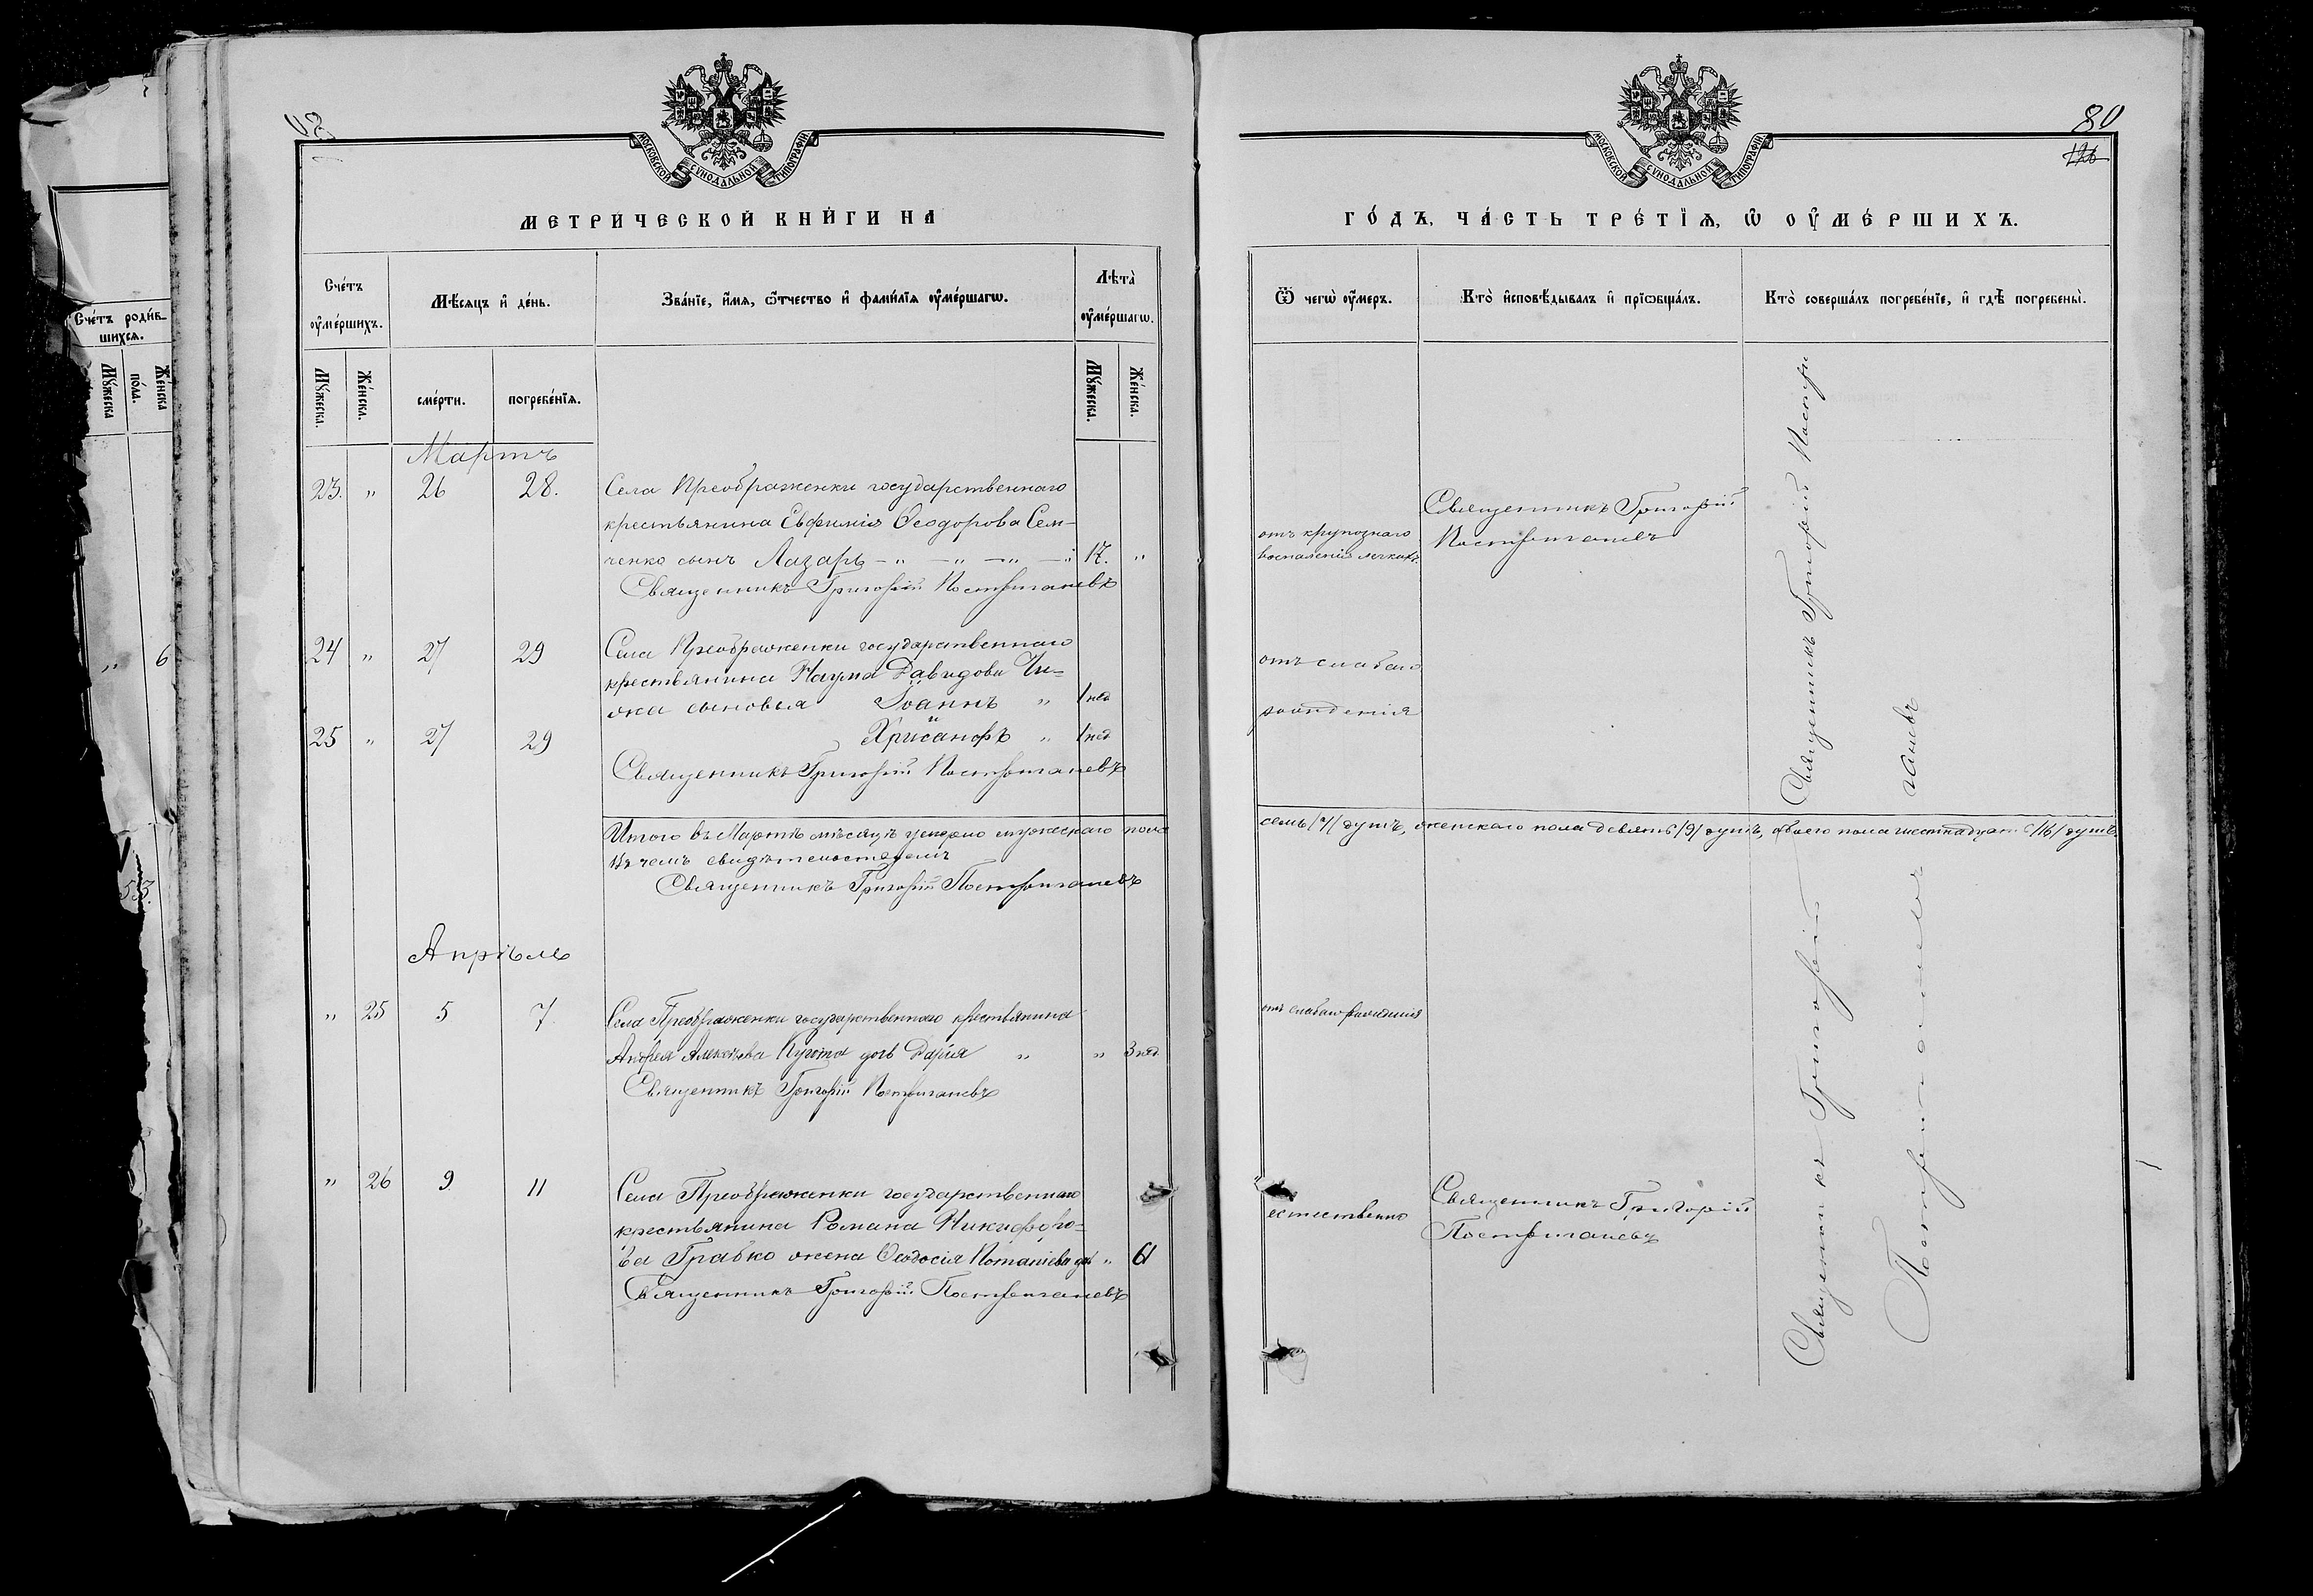 МОСКОВСКОЙ СѴНОДАЛЬНОЙ ТИПОГРАФІИ
МЕТРИ́ЧЕСКОЙ КНИ́ГИ НА
Счётъ роди́в-
шихся.
Мꙋ́жеска
по́ла.
Же́нска
„ 6
53.
Сче́тъ
оу҆ме́ршихъ.
Мѣ́сяцъ и҆ де́нь.
Зва́нїе, и҆́мѧ, ѻ҆́тчество и҆ фами́лїѧ оу҆ме́ршагѡ.
Лѣ́та
оу҆ме́ршагѡ.
Мꙋ́жеска.
Же́нска.
сме́рти.
погребе́нїѧ.
Мꙋ́жеска.
Же́нска.
Мартъ
23. „ 26 28. Села Преображенки государственнаго
крестьянина Евфимія Ѳеодорова Сем-
ченко сынъ Лазарь – „ – „ – „ – „ 17. „
Священникъ Григорій Постриганевъ
24 „ 27 29 Села Преображенки государственнаго
крестьянина Наума Давидова
сыновья Іоаннъ „ 1 нед
25 „ 27 29 Хрисанфъ „ 1 нед
Священникъ Григорій Постриганевъ
Итого въ Мартѣ мѣсяцѣ умерло мужескаго пола
Въ чемъ свидѣтельствуемъ
Священникъ Григорій Постриганевъ
Апрѣль
„ 25 5 7 Села Преображенки государственнаго крестьянина
Андрея Алексѣева дочь Дарія „ „ 3 нед
Священникъ Григорій Постриганевъ
„ 26 9 11 Села Преображенки государственнаго
крестьянина Романа Никифоро-
ва Грабко жена Ѳеодосія „ 61
Священникъ Григорій Постриганевъ
80
126
МОСКОВСКОЙ СѴНОДАЛЬНОЙ ТИПОГРАФІИ
ГО́ДЪ, ЧА́СТЬ ТРЕ́ТЇѦ, Ѡ҆ ОУ҆МЕ́РШИХЪ.
Ѿ чегѡ̀ оу҆́меръ.
Кто̀ и҆сповѣ́дывалъ и҆ прїѡбща́лъ.
Кто̀ соверша́лъ погребе́нїе, и҆ гдѣ̀ погребены̀.
отъ крупознаго
воспаленія легкихъ.
Священникъ Григорій
Постриганевъ
Священникъ Григорій Постри
ганевъ
отъ слабаго
рожденія
семь /7/ душъ, женскаго пола девять /9/ душъ, обоего пола шестнадцать /16/ душъ.
отъ слабаго рожденія
естественно
Священникъ Григорій
Постриганевъ
Священникъ Григорій
Постриганевъ